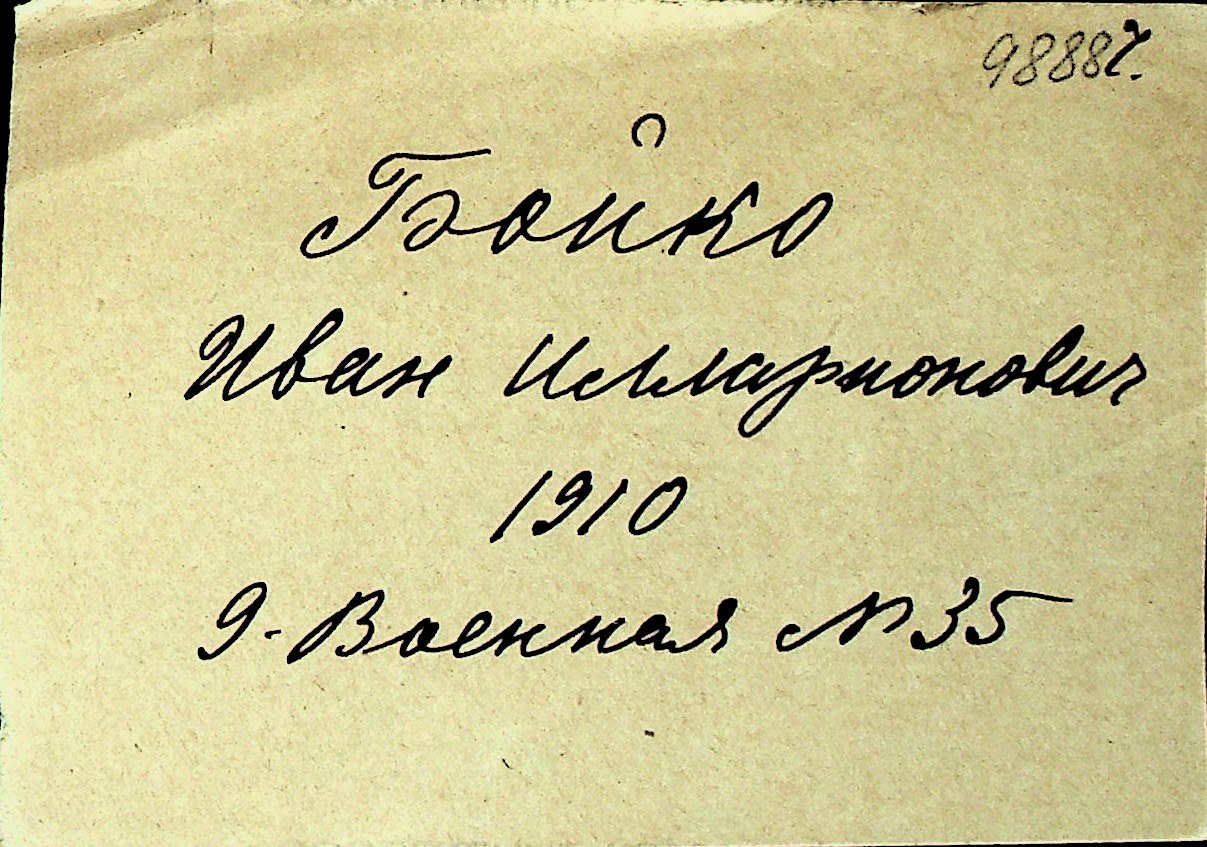 9888ч.
Бойко
Иван Илларионович
1910
9-Военная №35